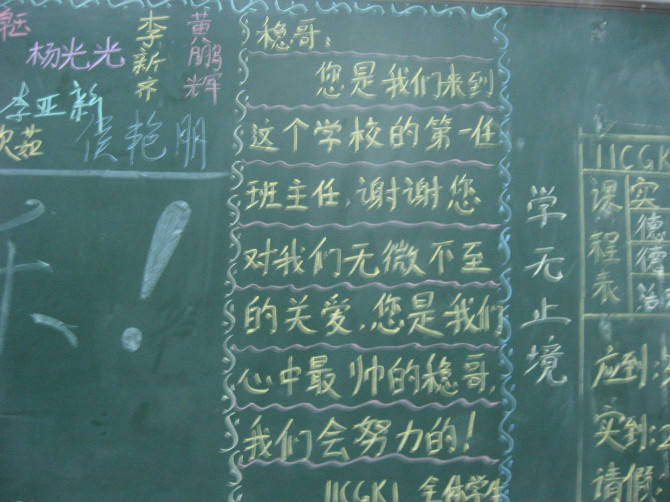 杨光光
李新齐
黄鹏辉
李亚新
侯艳朋
乐!
稳哥:
您是我们来到
这个学校的第一任
班主任,谢谢您
对我们无微不至
的关爱,您是我们
心中最帅的稳哥,
我们会努力的!
11CGK1 全体学生
学无止境
11CGK
课程表
实
德
德
应到:
实到:
请假: